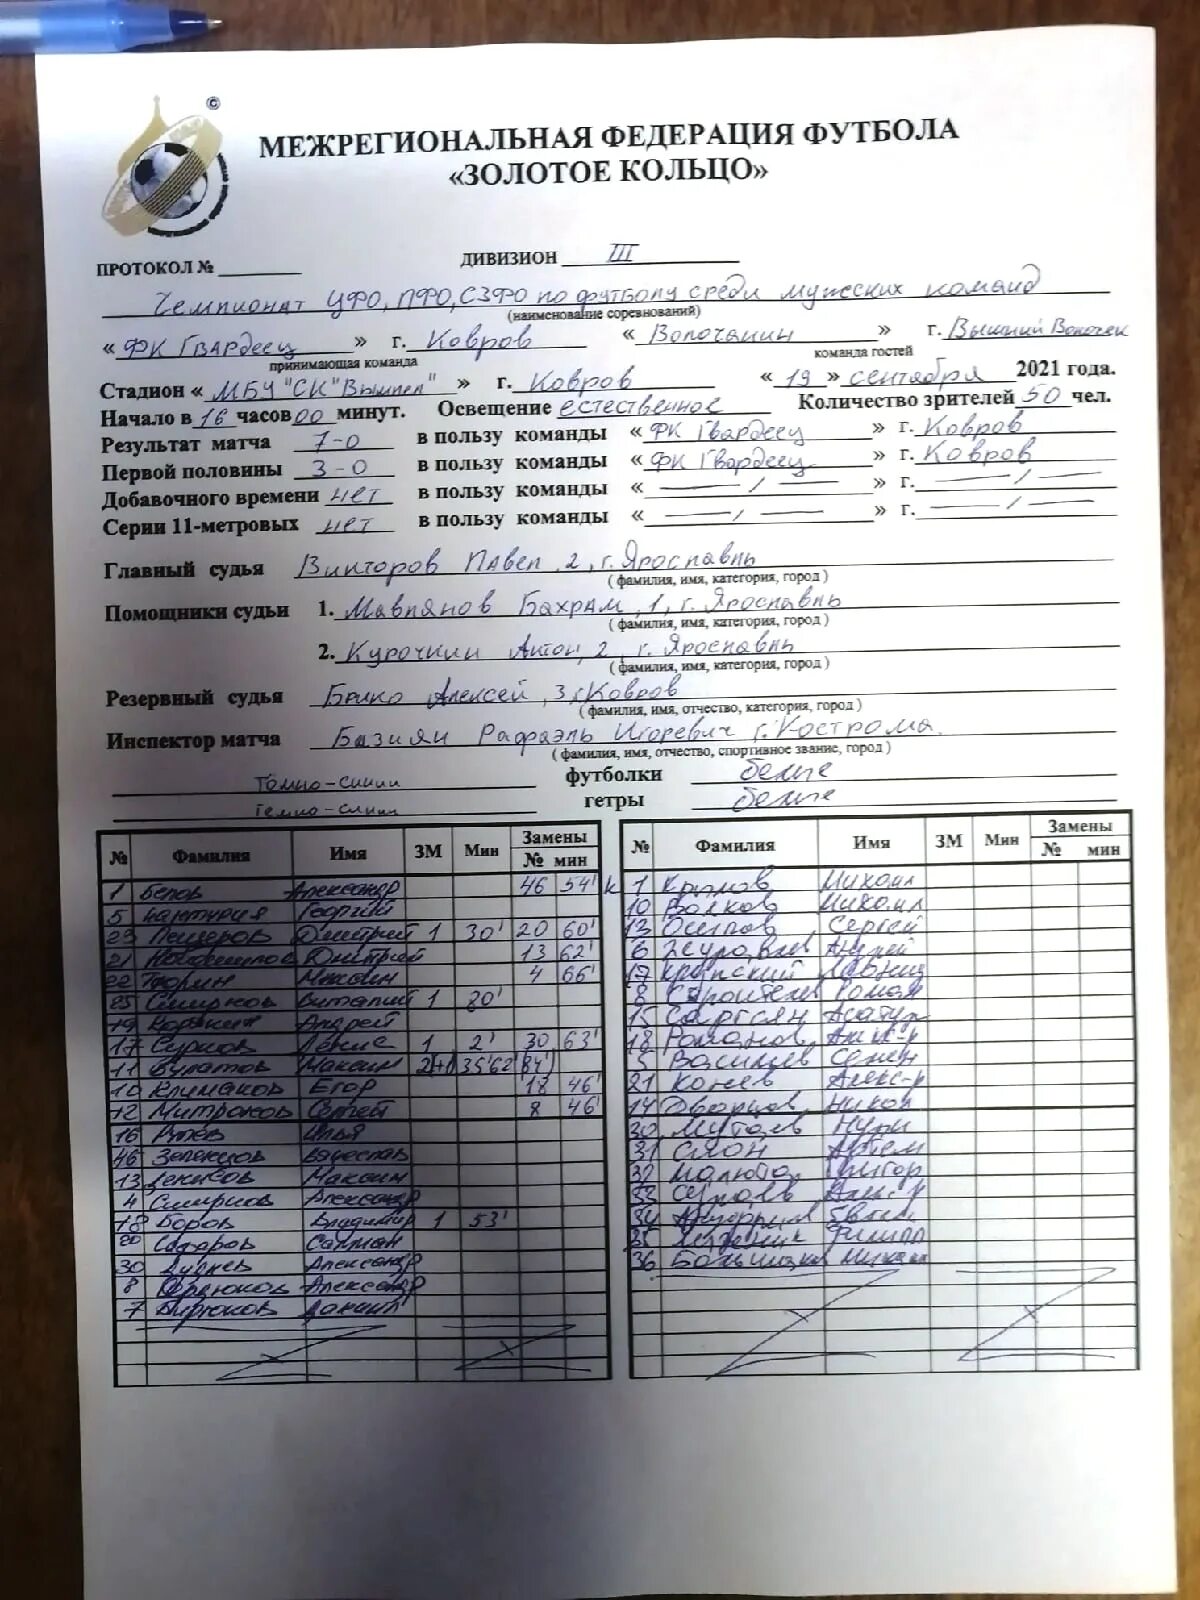 ©
МЕЖРЕГИОНАЛЬНАЯ ФЕДЕРАЦИЯ ФУТБОЛА
«ЗОЛОТОЕ КОЛЬЦО»
ПРОТОКОЛ № ДИВИЗИОН III
Чемпионат ЦФО, ПФО, СЗФО по футболу среди мужских команд
(наименование соревнований)
« ФК Гвардеец » г. Ковров « Волочанин » г. Вышний Волочек
принимающая команда команда гостей
Стадион « МБУ "СК "Вымпел" » г. Ковров « 19 » сентября 2021 года.
Начало в 16 часов 00 минут. Освещение естественное Количество зрителей 50 чел.
Результат матча 7-0 в пользу команды « ФК Гвардеец » г. Ковров
Первой половины 3-0 в пользу команды « ФК Гвардеец » г. Ковров
Добавочного времени нет в пользу команды « — / — » г. — / —
Серии 11-метровых нет в пользу команды « — / — » г. — / —
Главный судья Викторов Павел, 2, г. Ярославль
( фамилия, имя, категория, город )
Помощники судьи 1. Мавлянов Бахрам, 1, г. Ярославль
( фамилия, имя, категория, город )
2. Курочкин Антон, 2, г. Ярославль
( фамилия, имя, категория, город )
Резервный судья Алексей, 3, г. Ковров
( фамилия, имя, отчество, категория, город )
Инспектор матча Базиян Рафаэль Игоревич г. Кострома.
( фамилия, имя, отчество, спортивное звание, город )
Темно-синии футболки белые
Темно-синии гетры белые
№ Фамилия Имя ЗМ Мин Замены № мин
1 Белов Александр 46 54'
5 Георгий
23 Пещеров Дмитрий 1 30' 20 60'
21 Дмитрий 13 62'
22 4 66'
25 Смирнов Виталий 1 20'
19 Андрей
17 Сурков Денис 1 2' 30 63'
11 Булатов Максим 2(+1) 35' 62' (84')
10 Климаков Егор 18 46'
12 Митрохов Сергей 8 46'
16 Илья
46 Зеленцов Вячеслав
13 Денисов Максим
4 Смирнов Александр
18 Боров Владимир 1 53'
20 Сафаров Салман
30 Александр
8 Александр
7 Бирюков Даниил
№ Фамилия Имя ЗМ Мин Замены № мин
к 1 Крымов Михаил
10 Волков Михаил
13 Осипов Сергей
6 Журавлев Андрей
17 Крупский
8 Строителев Роман
15 Саргсян
18 Романов Алекс-р
5 Васищев Семен
21 Конев Алекс-р
14 Дворцов Никол
30 Мутаев Нури
31 Слон Артем
32 Малюта Игорь
33 Алекс-р
34 Евген
35 Филипп
36 Михаил